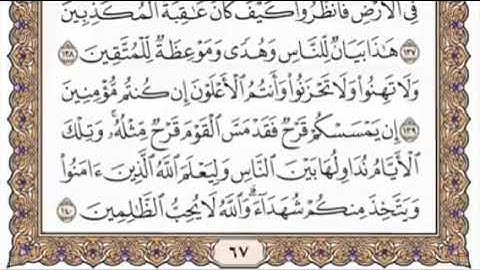 فِي ٱلۡأَرۡضِ فَٱنظُرُواْ كَيۡفَ كَانَ عَٰقِبَةُ ٱلۡمُكَذِّبِينَ
١٣٧ هَٰذَا بَيَانٞ لِّلنَّاسِ وَهُدٗى وَمَوۡعِظَةٞ لِّلۡمُتَّقِينَ ١٣٨
وَلَا تَهِنُواْ وَلَا تَحۡزَنُواْ وَأَنتُمُ ٱلۡأَعۡلَوۡنَ إِن كُنتُم مُّؤۡمِنِينَ
١٣٩ إِن يَمۡسَسۡكُمۡ قَرۡحٞ فَقَدۡ مَسَّ ٱلۡقَوۡمَ قَرۡحٞ مِّثۡلُهُۥۚ وَتِلۡكَ
ٱلۡأَيَّامُ نُدَاوِلُهَا بَيۡنَ ٱلنَّاسِ وَلِيَعۡلَمَ ٱللَّهُ ٱلَّذِينَ ءَامَنُواْ
وَيَتَّخِذَ مِنكُمۡ شُهَدَآءَۗ وَٱللَّهُ لَا يُحِبُّ ٱلظَّٰلِمِينَ ١٤٠
٦٧